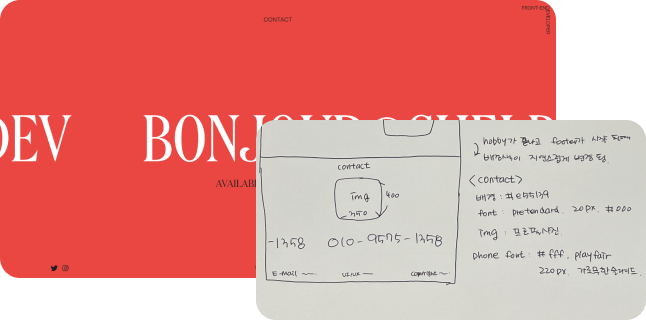 CONTACT
FRONT-END
DEVELOPER
DEV BONJOUR
AVAILABL
contact
img
400
350
-1358 010-9575-1358
E-mail
hobby가 끝나고 footer가 시작
배경색이 자연스럽게 변경 됨.
<contact>
배경 : #e55139
font : pretendard. 20px. #000
img : 프로필사진.
phone font : #fff. playfair
220px. 가로무한슬라이드.